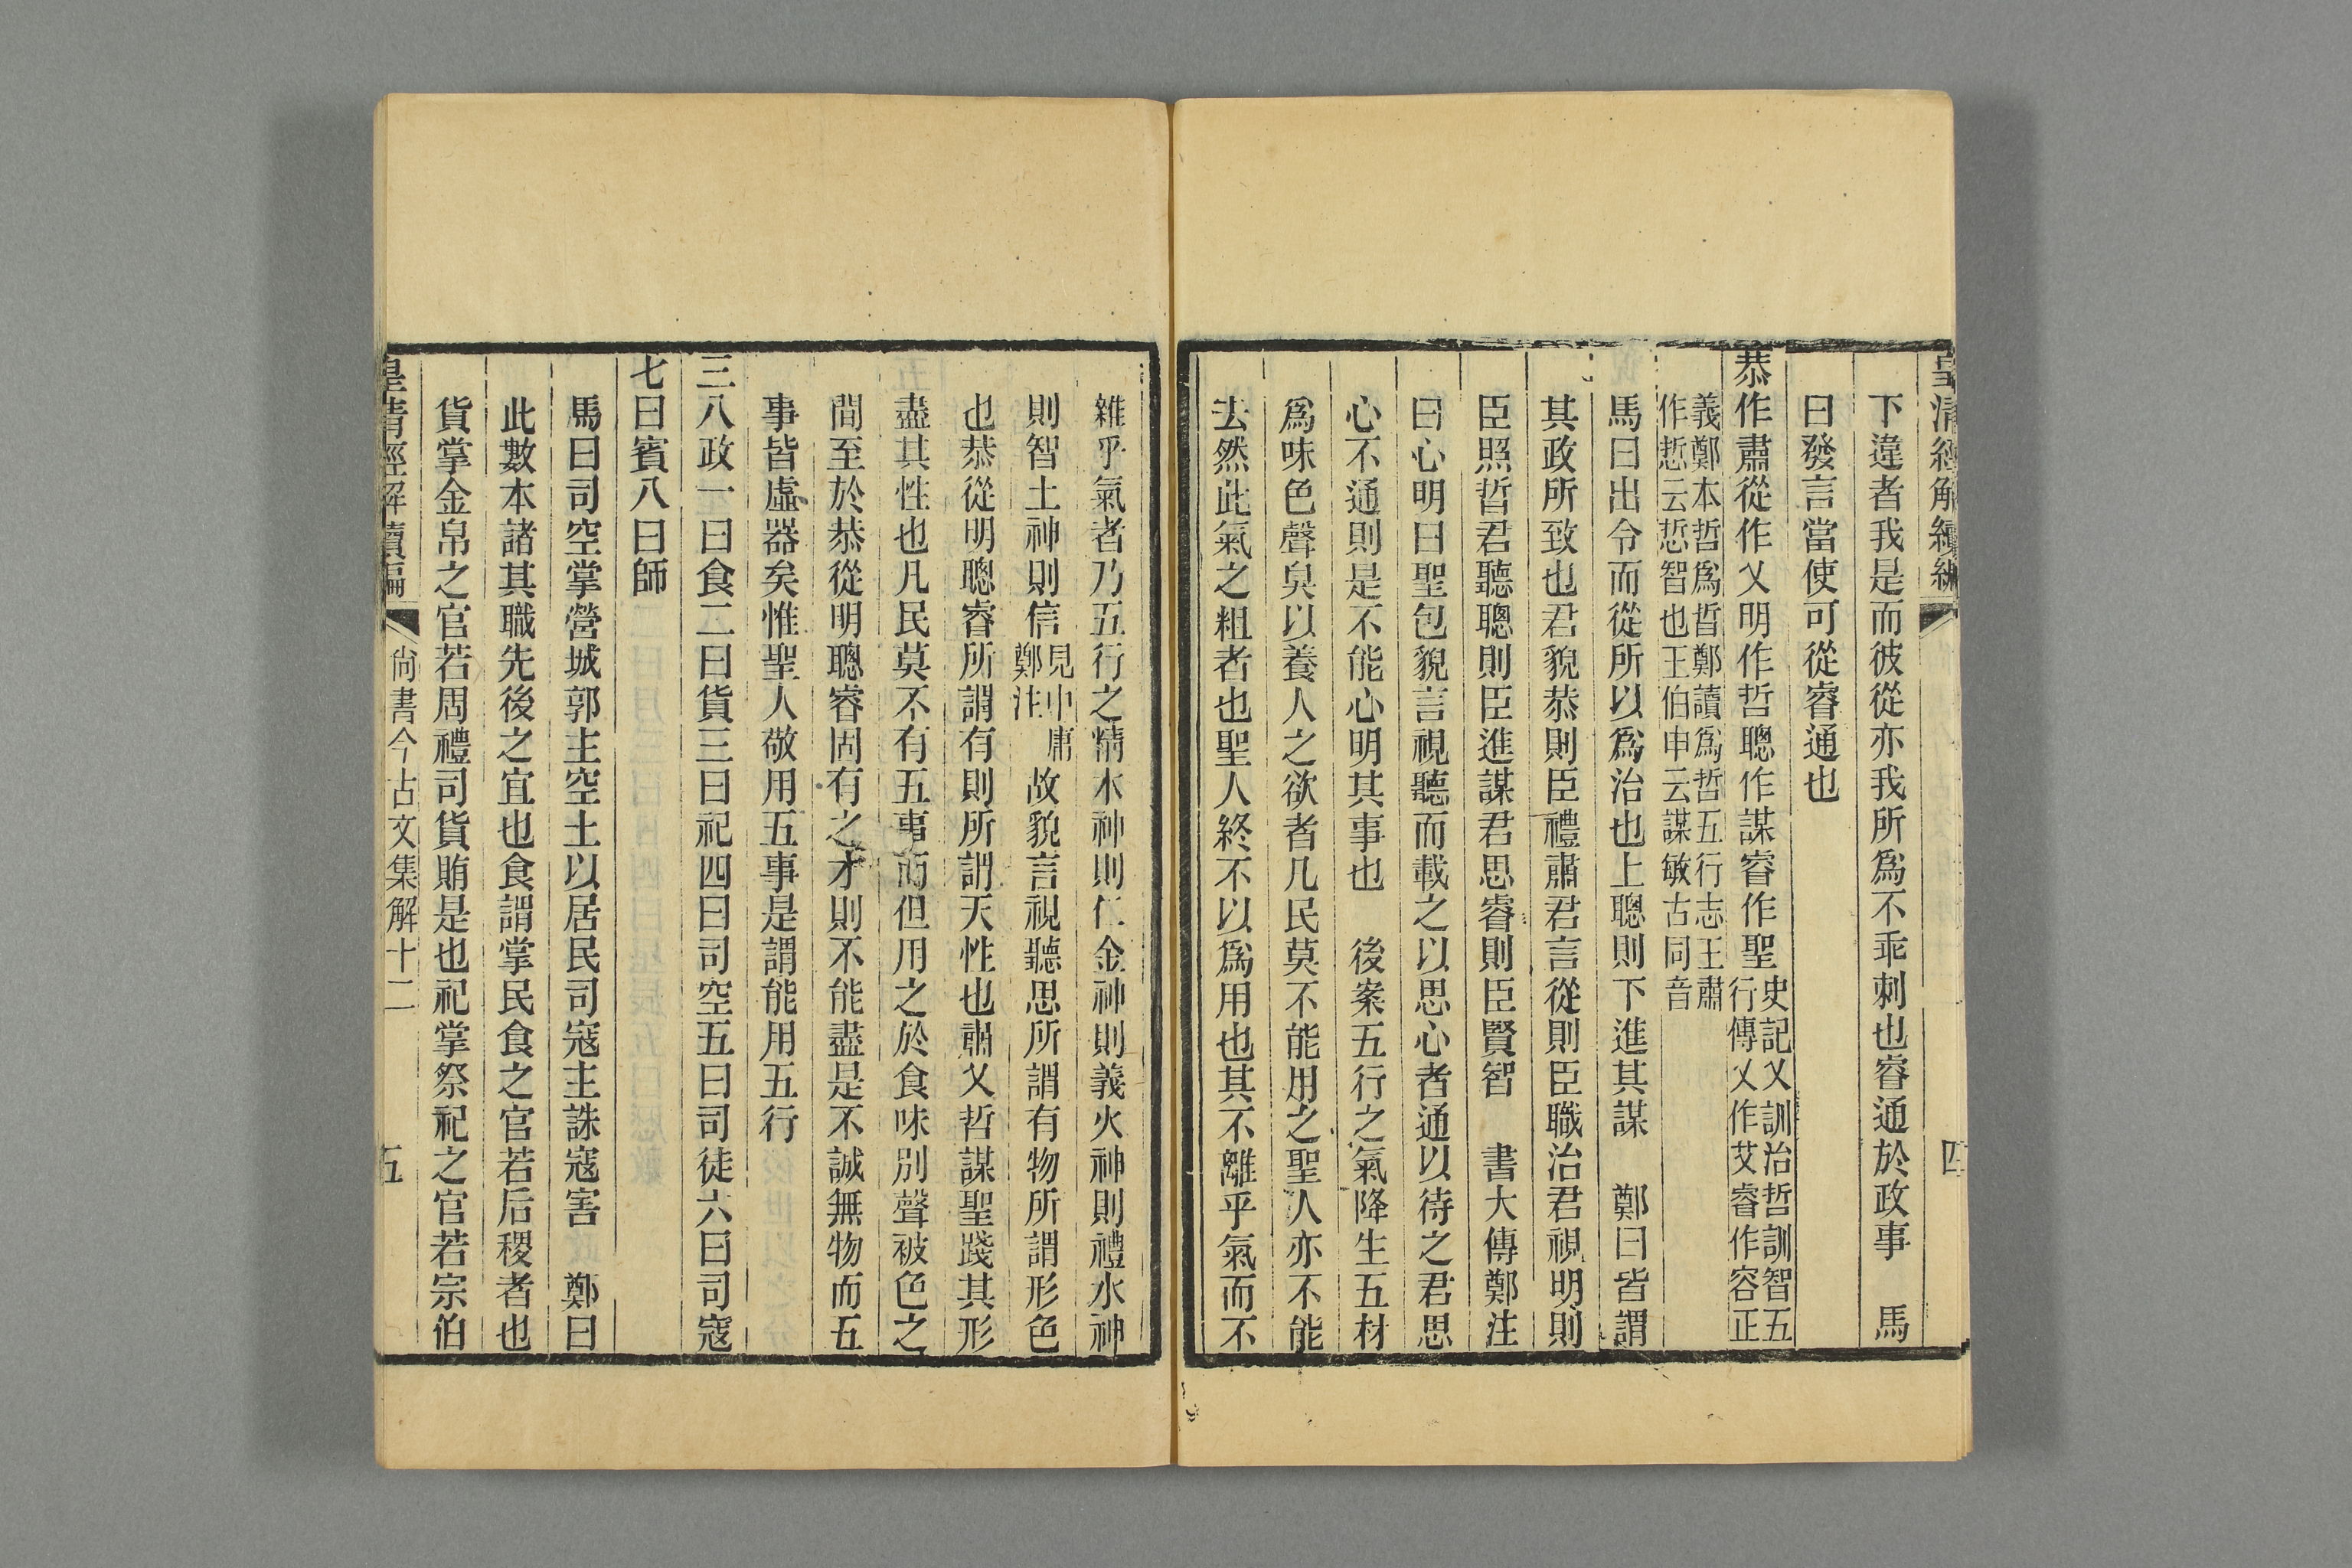 皇清經解續編
四
下違者我是而彼從亦我所爲不乖刺也睿通於政事　馬
曰發言當使可從睿通也
恭作肅從作乂明作哲聰作謀睿作聖史記乂訓治哲訓智五
行傳乂作艾睿作容正
義鄭本哲爲晢鄭讀爲哲五行志王肅
作悊云悊智也王伯申云謀敏古同音
馬曰出令而從所以爲治也上聰則下進其謀　鄭曰皆謂
其政所致也君貌恭則臣禮肅君言從則臣職治君視明則
臣照晢君聽聰則臣進謀君思睿則臣賢智　書大傳鄭注
曰心明曰聖包貌言視聽而載之以思心者通以待之君思
心不通則是不能心明其事也　後案五行之氣降生五材
爲味色聲臭以養人之欲者凡民莫不能用之聖人亦不能
去然此氣之粗者也聖人終不以爲用也其不離乎氣而不
雜乎氣者乃五行之精木神則仁金神則義火神則禮水神
則智土神則信見中庸
鄭注故貌言視聽思所謂有物所謂形色
也恭從明聰睿所謂有則所謂天性也肅乂哲謀聖踐其形
盡其性也凡民莫不有五事而但用之於食味別聲被色之
間至於恭從明聰睿固有之才則不能盡是不誠無物而五
事皆虛器矣惟聖人敬用五事是謂能用五行
三八政一曰食二曰貨三曰祀四曰司空五曰司徒六曰司寇
七曰賓八曰師
馬曰司空掌營城郭主空土以居民司寇主誅寇害　鄭曰
此數本諸其職先後之宜也食謂掌民食之官若后稷者也
貨掌金帛之官若周禮司貨賄是也祀掌祭祀之官若宗伯
皇清經解續編
尚書今古文集解十二
五